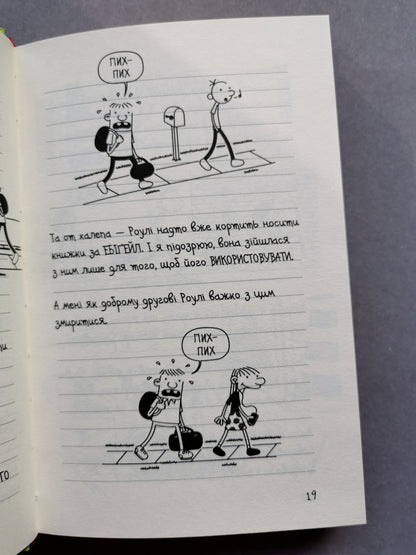 ПИХ-
ПИХ
Та от халепа — Роулі надто вже кортить носити
книжки за ЕБІҐЕЙЛ. І я підозрюю, вона зійшлася
з ним лише для того, щоб його ВИКОРИСТОВУВАТИ.
А мені як доброму другові Роулі важко з цим
змиритися.
ПИХ-
ПИХ
19